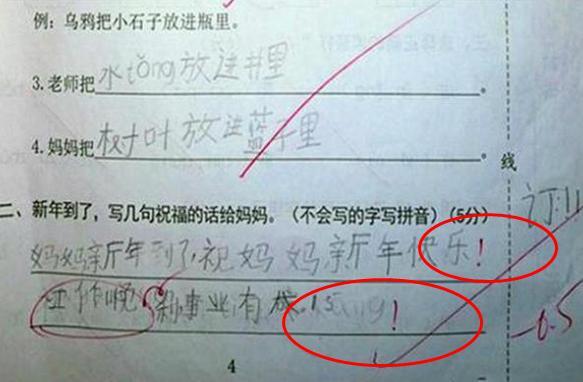 例：乌鸦把小石子放进瓶里。
3.老师把水tǒng放进井里。
4.妈妈把树叶放进蓝子里。
线
订
二、新年到了，写几句祝福的话给妈妈。（不会写的字写拼音）（5分）
妈妈新年到了，祝妈妈新年快乐！
工作悦 事业有成 !
-0.5
4